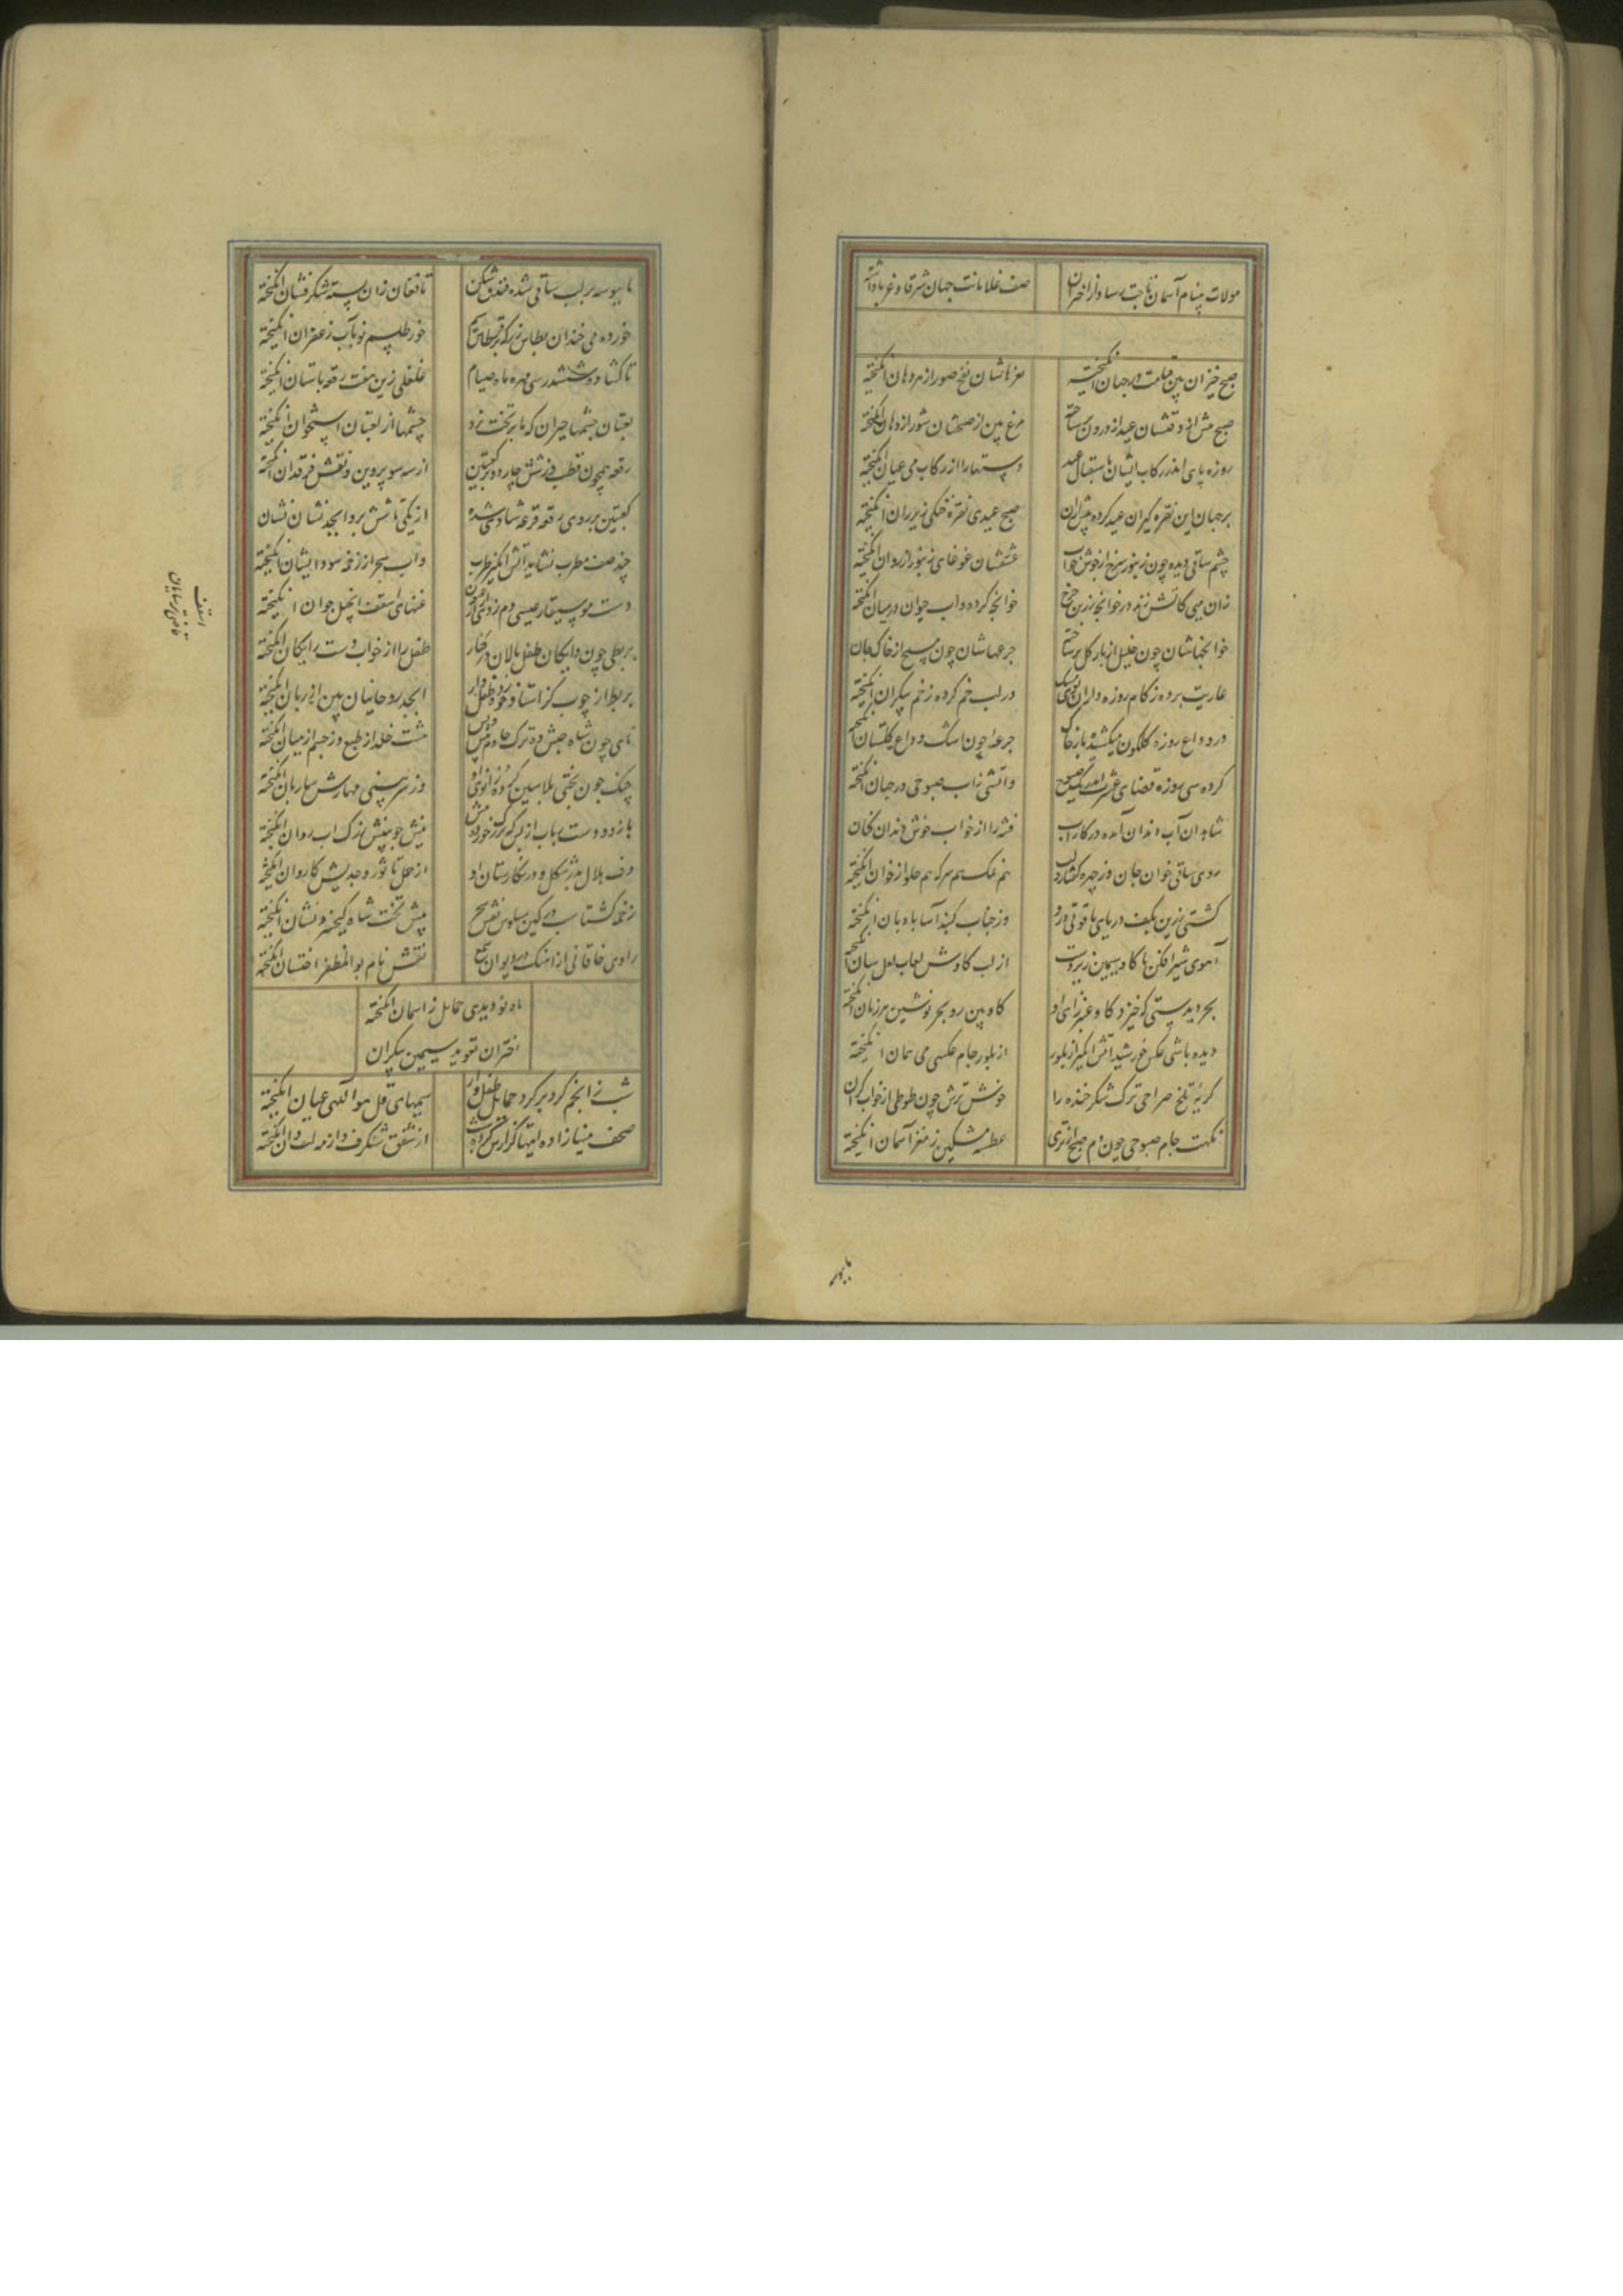 مولات چنام آسمان تاجت رسا و از اختران
صف غلامانت جهان شرقا و غربا داشته
صبح خیزان بین قیامت در جهان انگیخته
نعرهاشان نفخ صور از هر دهان انگیخته
صبح پیش از وقتشان عید از درون برساخته
مرغ پیش از صبحشان شور از دهان انگیخته
روزه پای اندر رکاب ایشان باستقبال عید
دستها را از رکاب می عیان انگیخته
بر جهان این نقره گیران عید کرده پیش ازان
صبح عیدی نقره خنگی زیر ران انگیخته
چشم ساقی دیده چون زنبور سرخ از جوش خواب
عشقشان غوغای زنبور از روان انگیخته
زان میی کاتش زند در خوانچه زرین چرخ
خوانچه کرده و اب حیوان در میان انگیخته
خوانچهاشان چون خلیل از نار گل برساخته
جرعهاشان چون مسیح از خاک جان
عاریت برده ز کام روزه داران بوی مشک
در لب خم کرده ز خم پیکران انگیخته
در وداع روزه گلگون میکشیده باز خاک
جرعها چون اشک وداع گلستان انگیخته
کرده سی روزه قضای عشرت اندر یک صبوح
و اتشی زاب صبوحی در جهان انگیخته
شاهدان آب دندان آمده در کار آب
فتنه را از خواب خوش دندان کنان
روی ساقی خوان جان وز چهره گفتار و لب
هم نمک هم سرکه هم حلوا ز خوان انگیخته
کشتی زرین بکف دریای یاقوتی درو
وز حباب گنبد آسا بادبان انگیخته
آهوی شیرافکن ما گاو سیمین زیر دست
از لب گاوش لعاب لعل سان انگیخته
بحر دیدستی که خیزد گاو عنبر زای او
گاو بین زو بحر نوشین هر زمان انگیخته
دیده باشی عکس خورشید آتش انگیز از بلور
از بلور جام عکسی می همان انگیخته
گریه تلخ صراحی ترک شکرخنده را
خوش ترش چون طوطی از خواب گران
نکهت جام صبوحی چون دم صبح از تری
عطسه مشکین ز مغز آسمان انگیخته
تا ببوسه
تا ببوسه بر لب ساقی شده فندق شکن
تا فغان زان پسته شکرفشان انگیخته
خورده می خندان بطاس زر که بر قرطاس سیم
خور طلسم نو بآب زعفران انگیخته
تا گشاده ششدر سی مهره ماه صیام
غلغلی زین هفت رقعه باستان انگیخته
لعبتان چشمها حیران که ما بر تخت نرد
چشمها از لعبتان استخوان انگیخته
رقعه همچون قطب وز شش چار و دو بر کعبتین
از سه سو پروین و نقش فرقدان انگیخته
کعبتین بر روی رقعه قرعه شادی شده
از یکی تا شش برو ابجد نشان نشان
چند صف مطرب نشانده آتش انگیز طرب
و اب سحر از زخمه سودایشان انگیخته
دست موسیقار عیسی دم ز رومی ارغنون
غنهای اسقف انجیل خوان انگیخته
بربطی چون دایگان طفل نالان در کنار
طفل را از خواب دست رایگان انگیخته
بربط از چوب کز استاد خورده طفل وار
ابجد روحانیان بین از زبان انگیخته
نای چون شاه حبش ده ترک خادم پیش و پس
هشت خلد از طبع وز جسم از میان انگیخته
چنگ چون بختی پلاسین کرده زانو بند او
وز سر بینی مهارش ساربان انگیخته
باز دو دست رباب از بس که گز خورده
نیش چوبینش ز رگ اب روان انگیخته
دف هلال بدر شکل و در شکارستان او
از حمل تا ثور و جدیش کاروان انگیخته
زخمه گشتاسب در کین سیاوش نقش سحر
پیش تخت شاه کیخسرو نشان انگیخته
راوی خاقانی از اهنگ در دیوان سمع
نقش نام بوالمظفر اخستان انگیخته
ماه نو دیدی حمایل ز اسمان انگیخته
اختران تعوید سیمین پیکران
شب ز انجم گرد بر گرد حمایل طفل وار
سیمهای قل هو اللهی عیان انگیخته
صحف مینا ز اده ایتها گزارش کرده شب
از شفق شنگرف و از مه لیقه دان انگیخته
اسقف
قاضی ترسایان